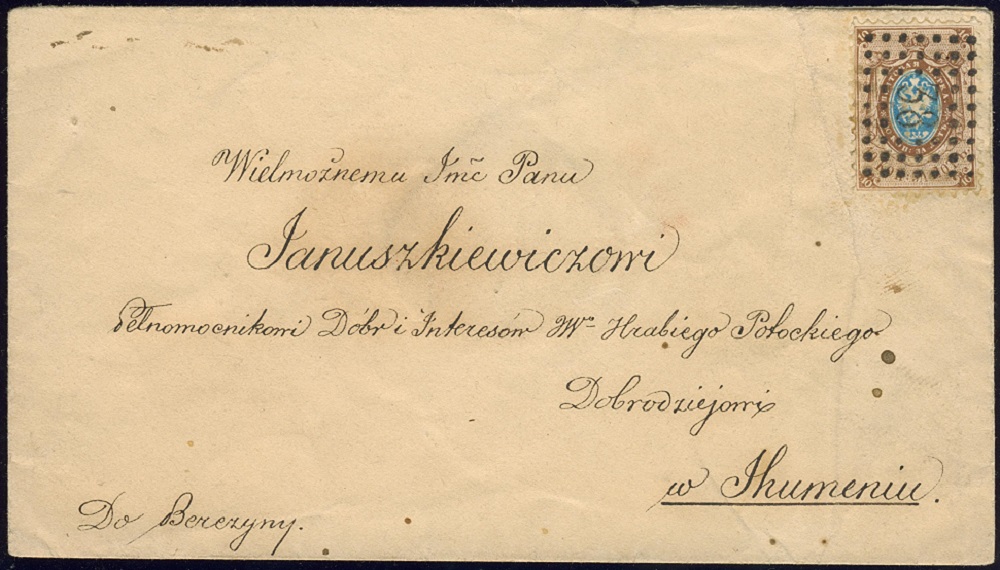 Wielmożnemu Jmć Panu
Januszkiewiczowi
Pełnomocnikowi Dóbr i Interesów JW Hrabiego Potockiego
Dobrodziejowi
w Ihumeniu.
Do Berezyny.